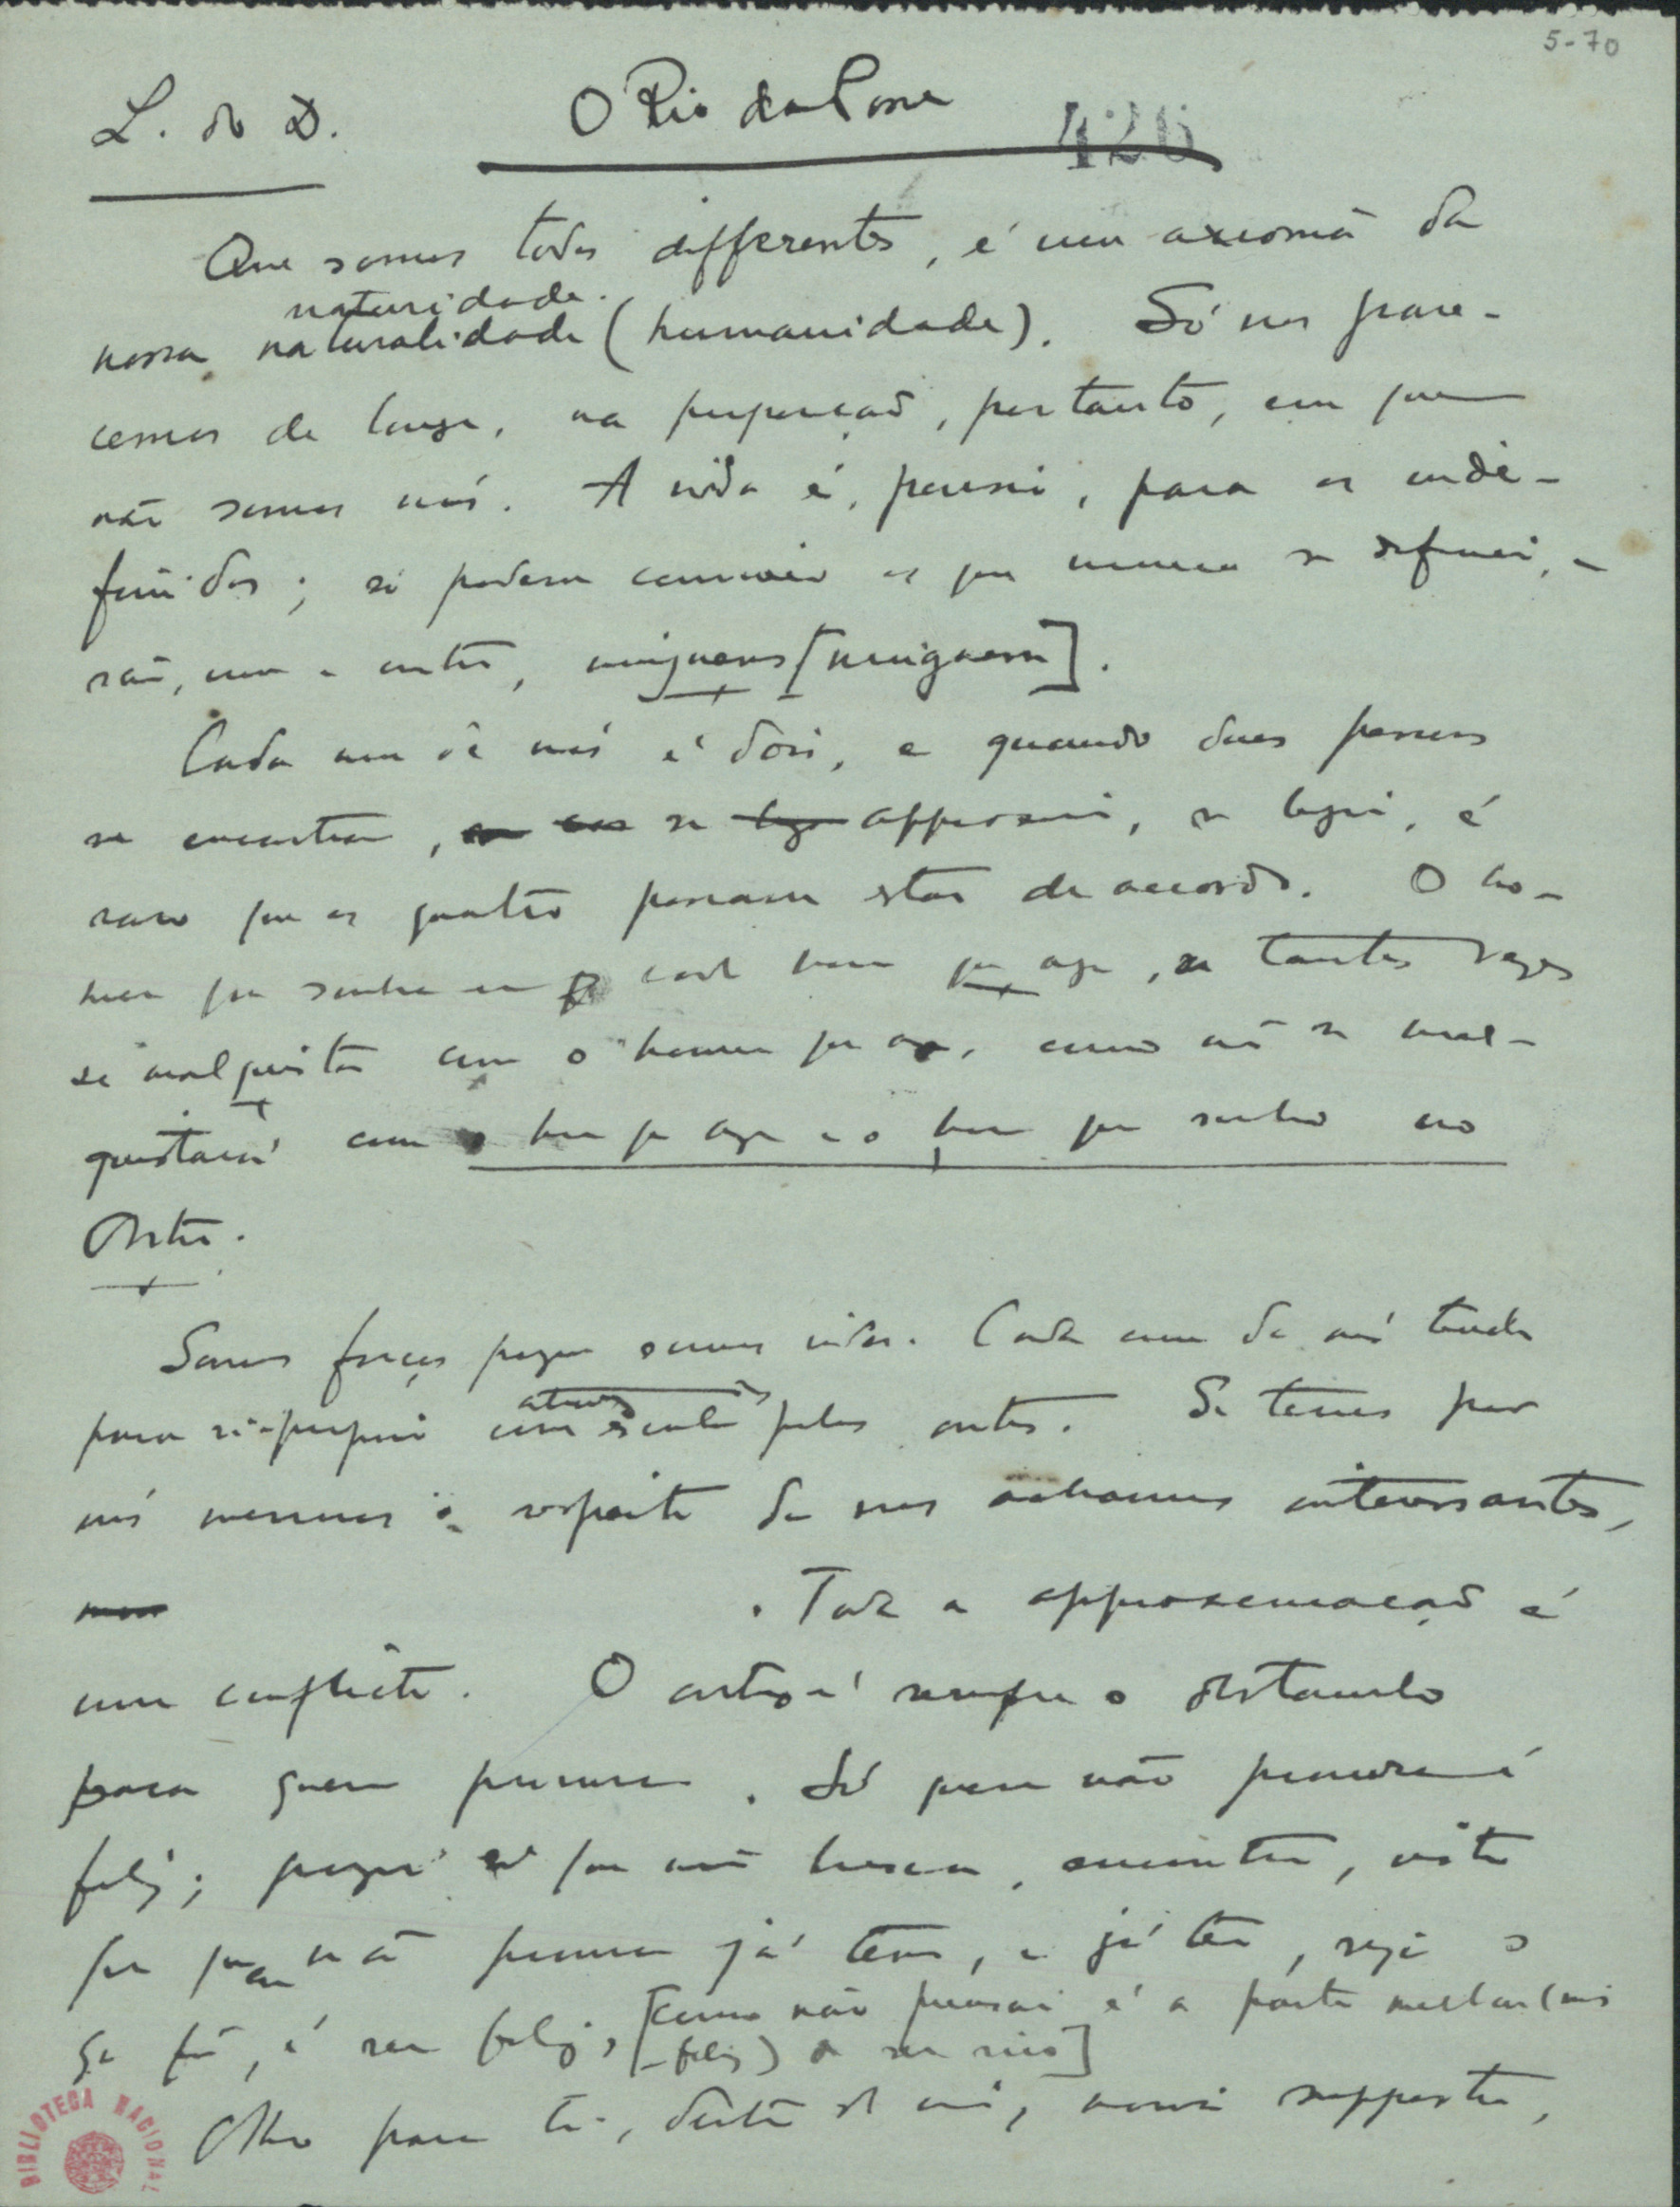 5-70
L. do D. O Rio da Posse
426
Que somos todos differentes, é um axioma da
naturidade.
nossa naturalidade (humanidade). Só nos pare-
cemos de longe, na proporção, portanto, em que
não somos nós. A vida é, porisso, para os inde-
finidos; só podem conviver os que nunca se defini-
rão, um e outro, ninguens [ninguem].
Cada um de nós é dois, e quando duas pessoas
se encontram, se approximam, se ligam, é
raro que as quatro possam estar de accordo. O ho-
mem que sonha em cada homem que age, se tantas vezes
se malquista com o homem que age, como não se mal-
quistará com o homem que age e o homem que sonha no
Outro.
Somos forças porque somos vidas. Cada um de nós tende
para si-proprio com escala pelos outros. Se temos por
nós mesmos o respeito de nos acharmos interessantes,
. Toda a approximação é
um conflicto. O outro é sempre o obstaculo
para quem procura. Só quem não procura é
feliz; porque só quem não busca, encontra, visto
que quem não procura já tem, e já ter, seja o
que fôr, é ser feliz, [como não pensar é a parte melhor (mais
feliz) de ser rico]
Olho para ti, dentro de mim, noiva supposta,
BIBLIOTECA NACIONAL